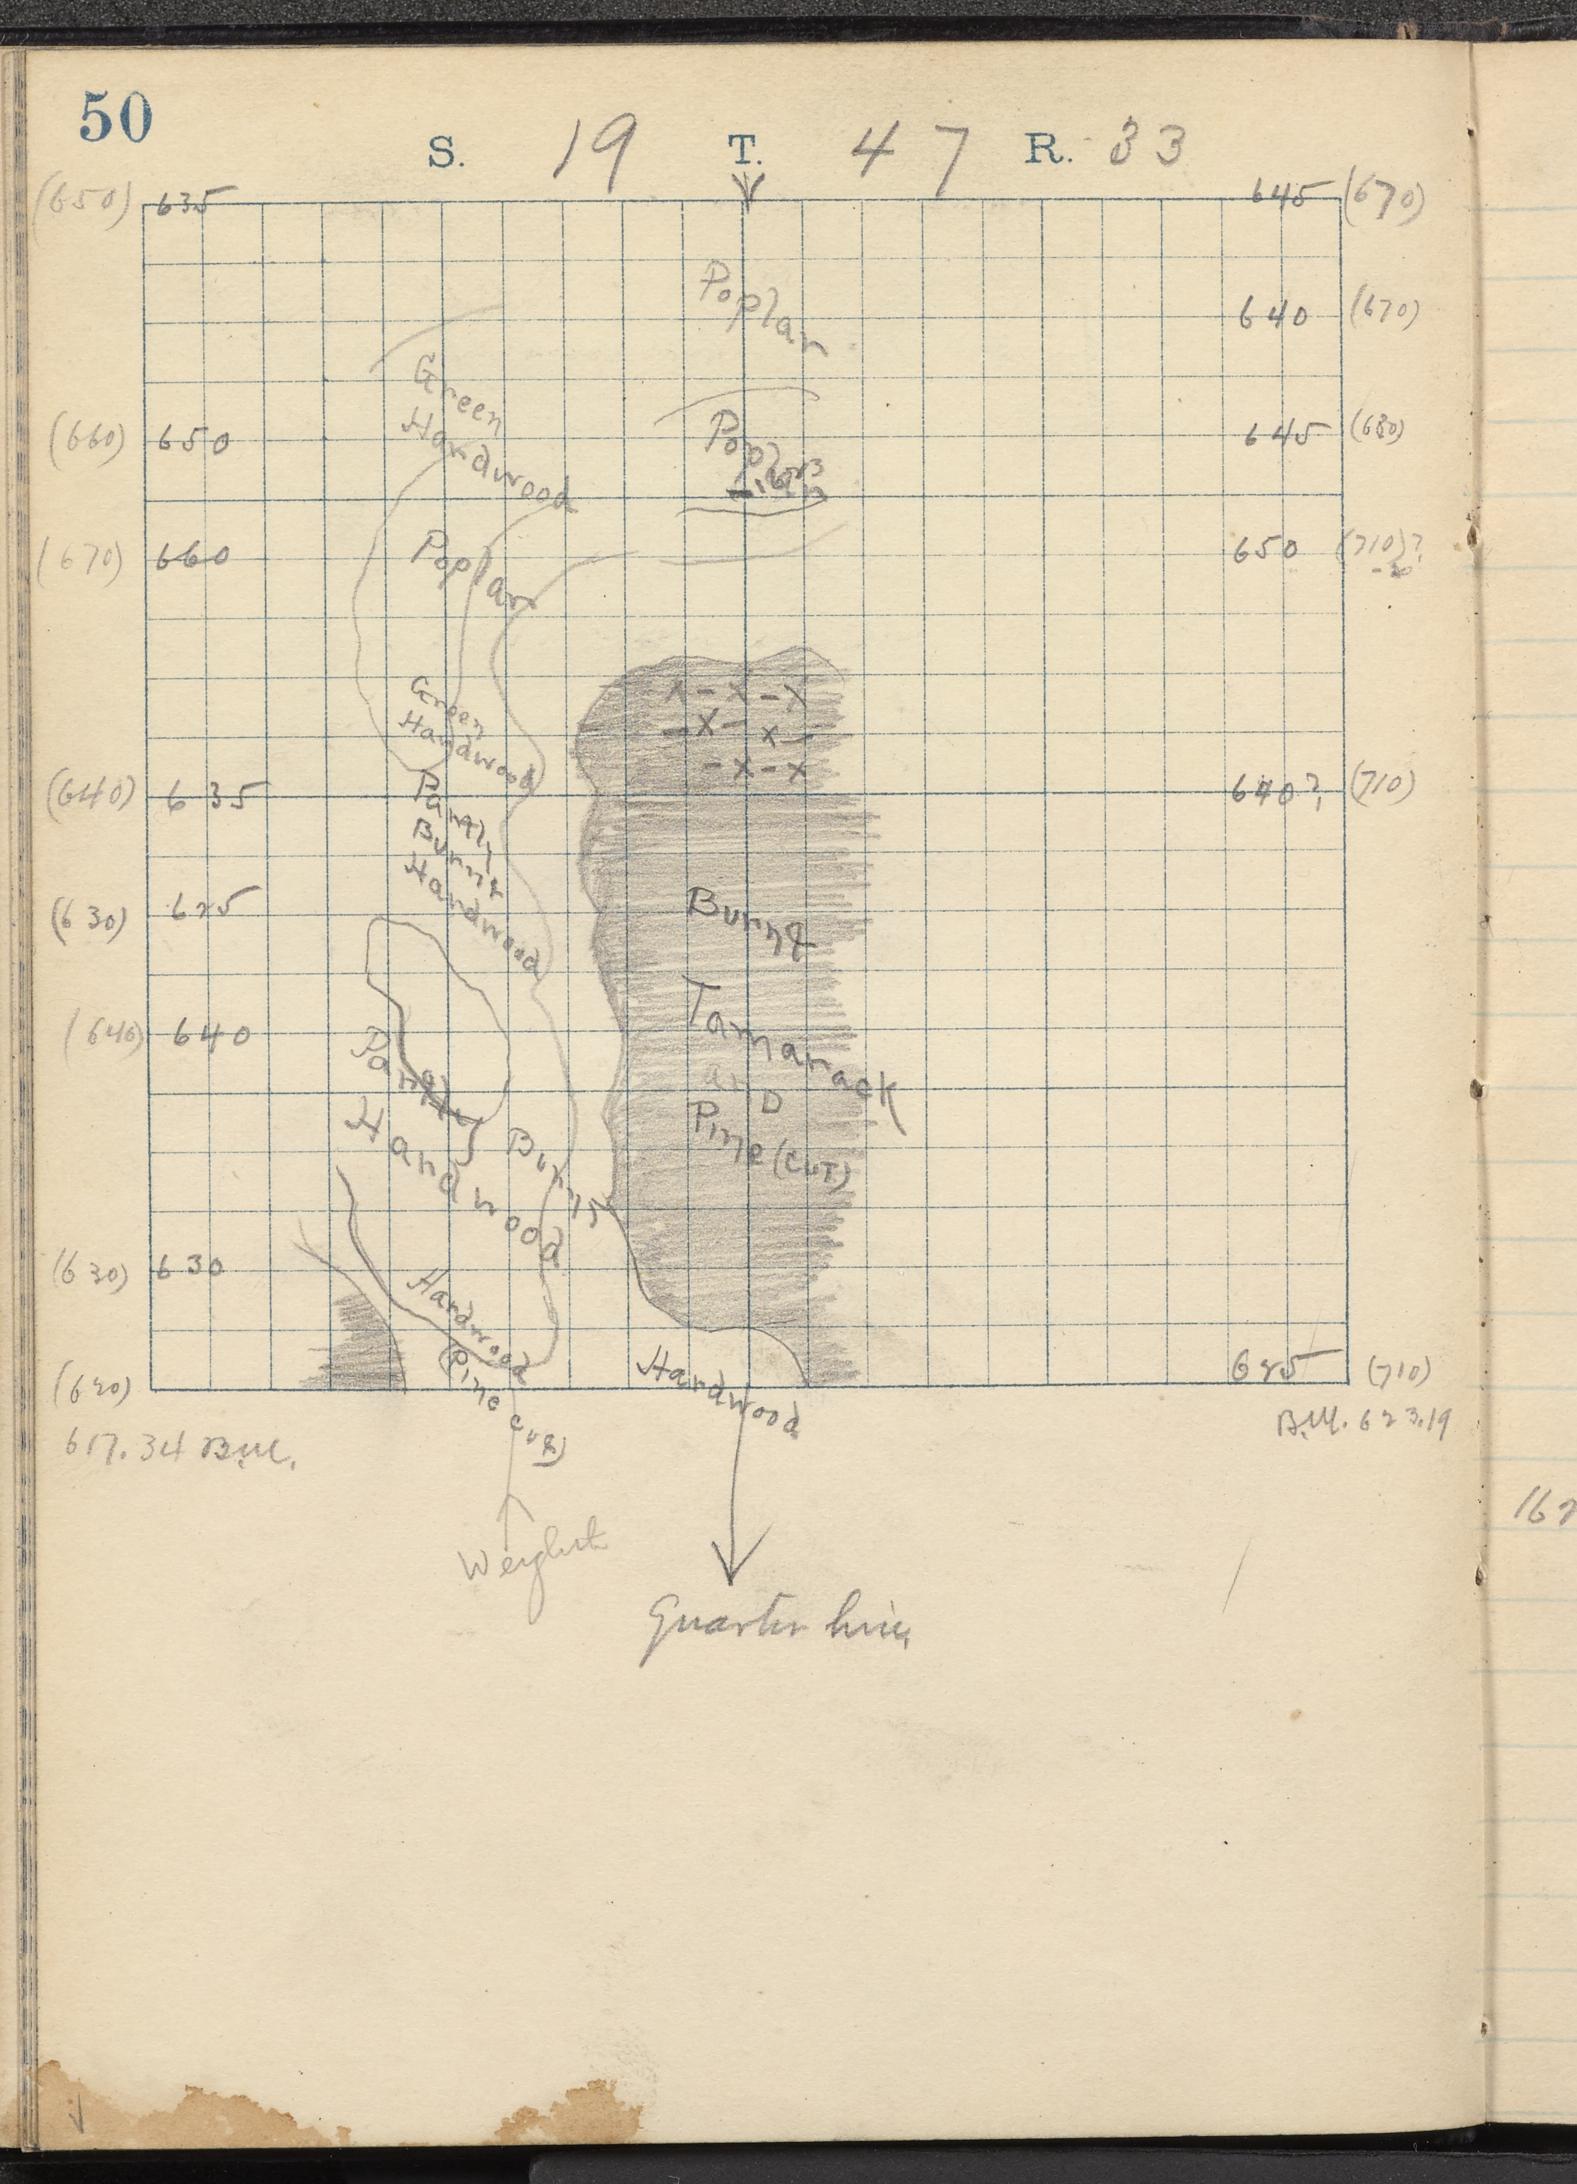 50
S. 19 T. 47 R. 33
(650) 635 645 (670)
Poplar
640 (670)
Green
Hardwood
Poplar
(660) 650 645 (680)
Poplar
(670) 660 650 (710)?
Green
Hardwood
X-X-X
-X- X-
-X-X
(640) 635 640? (710)
Partly
Burnt
Hardwood
Burnt
(630) 625
Tamarack
and
Pine (CUT)
(640) 640
Partly Burnt
Hardwood
(630) 630
Hardwood
(Pine cut)
Hardwood
625 (710)
(620)
617.34 B.M.
B.M. 623.19
Weight
Quarter line
162